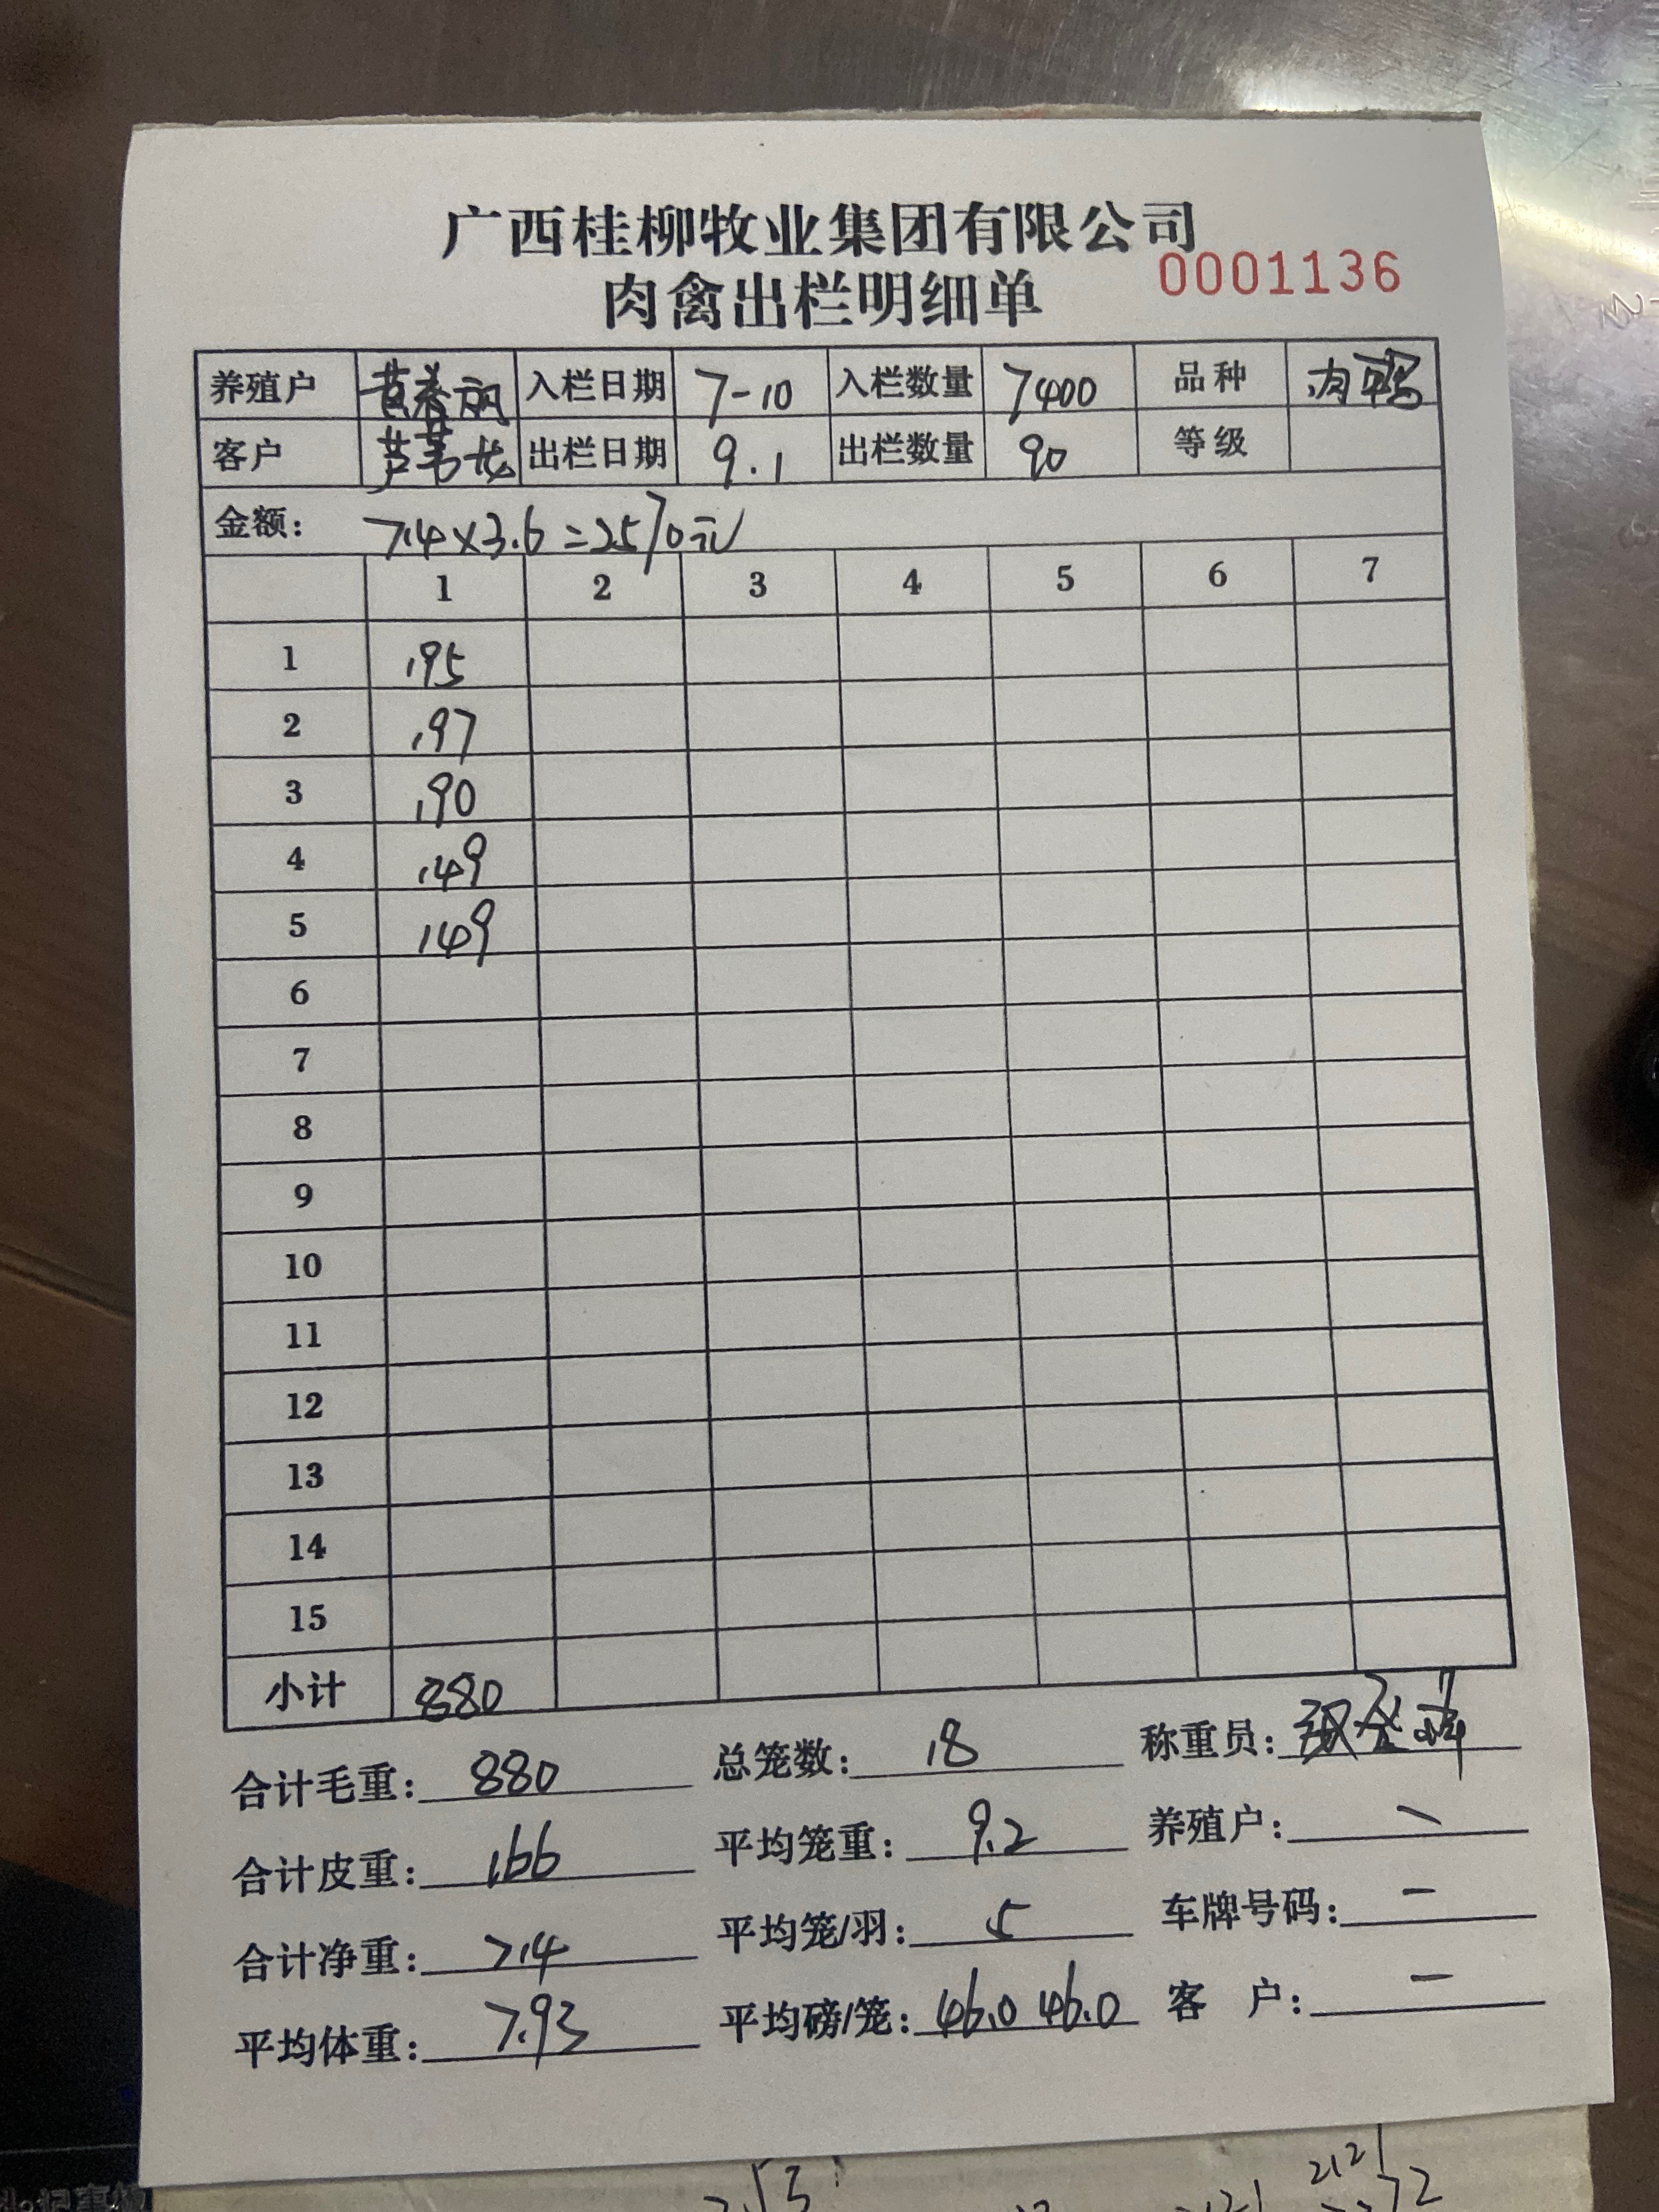 广西桂柳牧业集团有限公司
肉禽出栏明细单 0001136
养殖户 黄春丽 入栏日期 7-10 入栏数量 7400 品种 肉鸭
客户 芦苇龙 出栏日期 9.1 出栏数量 90 等级
金额: 714×3.6=2570元
1 2 3 4 5 6 7
1 195
2 197
3 190
4 149
5 149
6
7
8
9
10
11
12
13
14
15
小计 880
合计毛重: 880 总笼数: 18 称重员:
合计皮重: 166 平均笼重: 9.2 养殖户: 一
合计净重: 714 平均笼/羽: 5 车牌号码: 一
平均体重: 7.93 平均磅/笼: 46.0 46.0 客 户: 一
2121